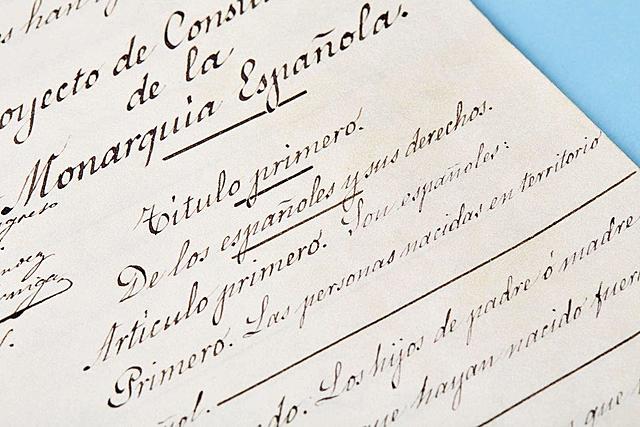 es han
oyecto de Consti
de la
Monarquia Española.
Título primero.
De los españoles y sus derechos.
Artículo primero. Son españoles:
Primero. Las personas nacidas en territorio
ñol.
do. Los hijos de padre ó madre
que hayan nacido fuera
que